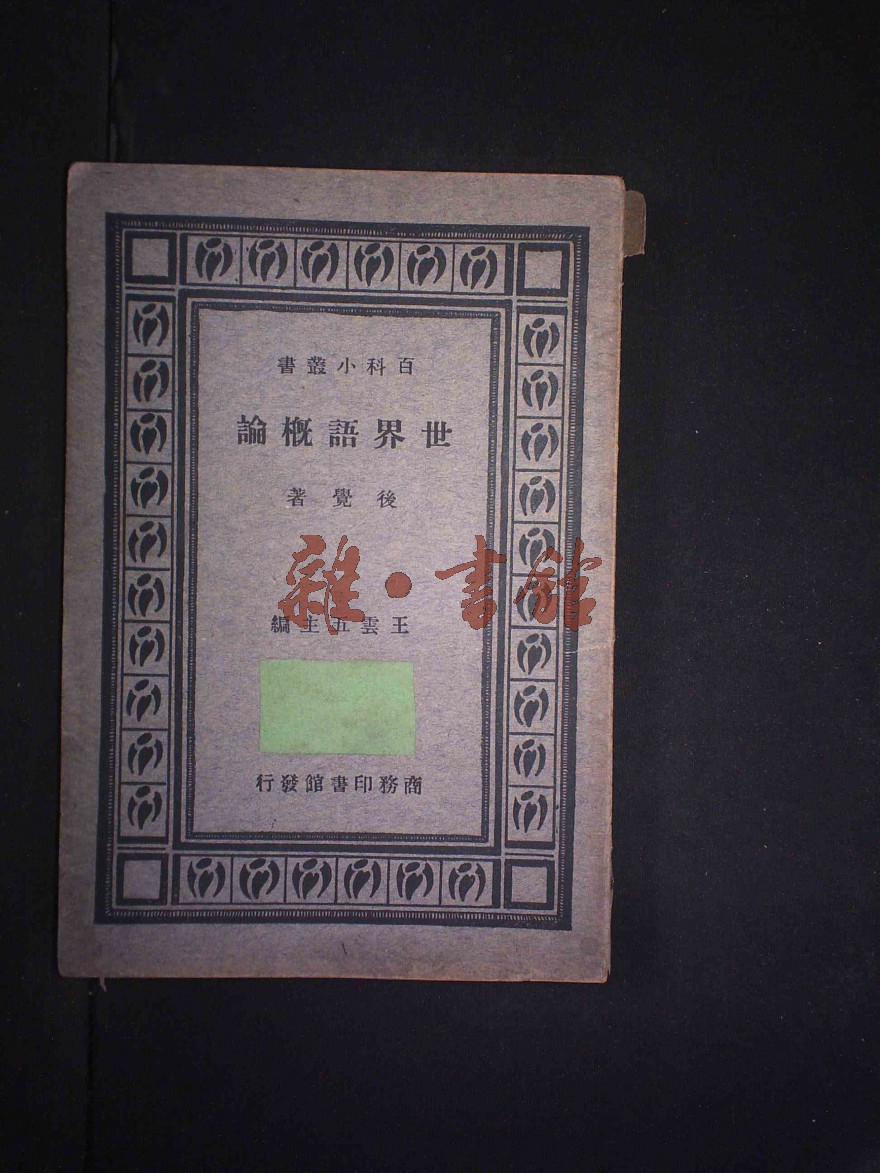 百科小叢書
世界語概論
後覺著
雜·書館
王雲五主編
商務印書館發行